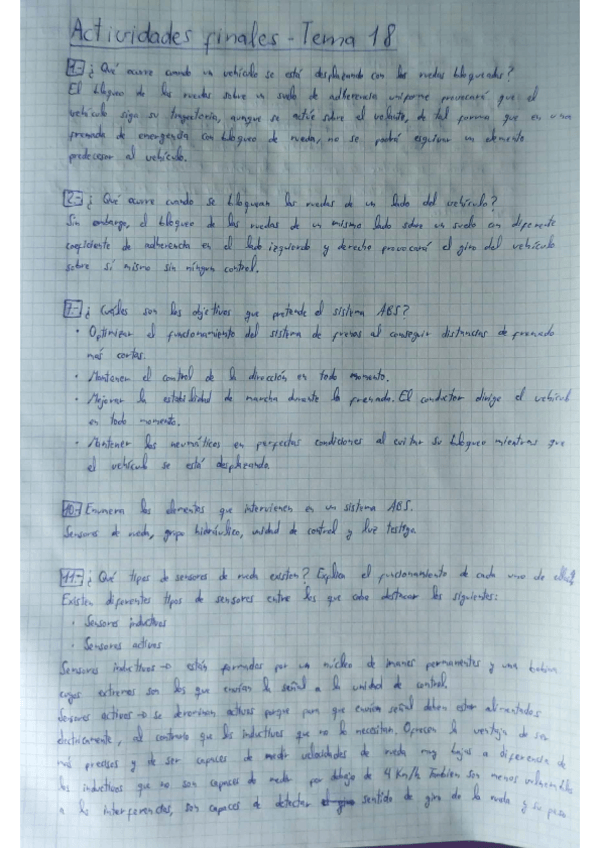 Actividades finales - Tema 18
1.- ¿Qué ocurre cuando un vehículo se está desplazando con las ruedas bloqueadas?
El bloqueo de las ruedas sobre un suelo de adherencia uniforme provocará que el
vehículo siga su trayectoria, aunque se actúe sobre el volante, de tal forma que en una
frenada de emergencia con bloqueo de rueda, no se podrá esquivar un elemento
predecesor al vehículo.
2.- ¿Qué ocurre cuando se bloquean las ruedas de un lado del vehículo?
Sin embargo, el bloqueo de las ruedas de un mismo lado sobre un suelo con diferente
coeficiente de adherencia en el lado izquierdo y derecho provocará el giro del vehículo
sobre sí mismo sin ningún control.
7.- ¿Cuáles son los objetivos que pretende el sistema ABS?
• Optimizar el funcionamiento del sistema de frenos al conseguir distancias de frenado
más cortas.
• Mantener el control de la dirección en todo momento.
• Mejorar la estabilidad de marcha durante la frenada. El conductor dirige el vehículo
en todo momento.
• Mantener los neumáticos en perfectas condiciones al evitar su bloqueo mientras que
el vehículo se está desplazando.
10.- Enumera los elementos que intervienen en un sistema ABS.
Sensores de rueda, grupo hidráulico, unidad de control y luz testigo.
11.- ¿Qué tipos de sensores de rueda existen? Explica el funcionamiento de cada uno de
Existen diferentes tipos de sensores entre los que cabe destacar los siguientes:
• Sensores inductivos
• Sensores activos
Sensores inductivos → están formados por un núcleo de imanes permanentes y una bobina
cuyos extremos son los que envían la señal a la unidad de control.
Sensores activos → se denominan activos porque para que envíen señal deben estar alimentados
eléctricamente, al contrario que los inductivos que no lo necesitan. Ofrecen la ventaja de ser
más precisos y de ser capaces de medir velocidades de rueda muy bajas a diferencia de
los inductivos que no son capaces de medir por debajo de 4 Km/h. También son menos vulnerables
a las interferencias, son capaces de detectar el sentido de giro de la rueda y su peso